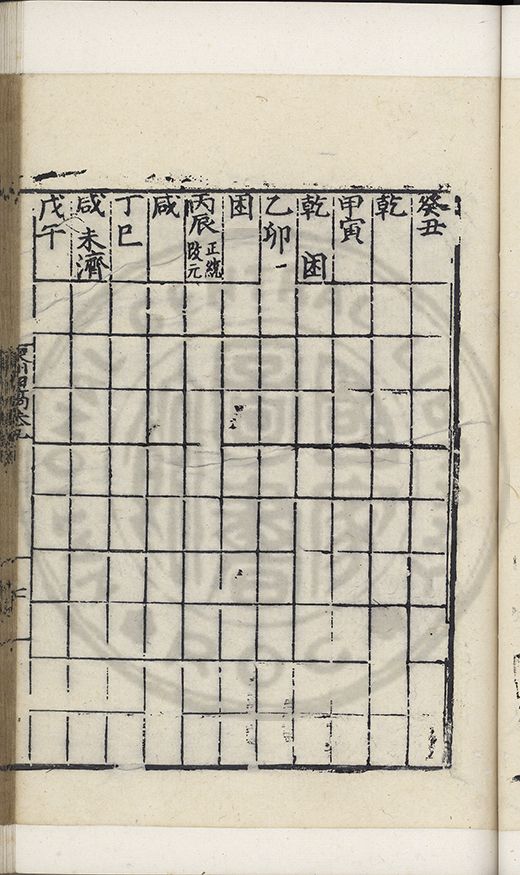 癸丑
乾
甲寅
乾 困
乙卯
困
丙辰 正統改元
咸
丁巳
咸 未濟
戊午